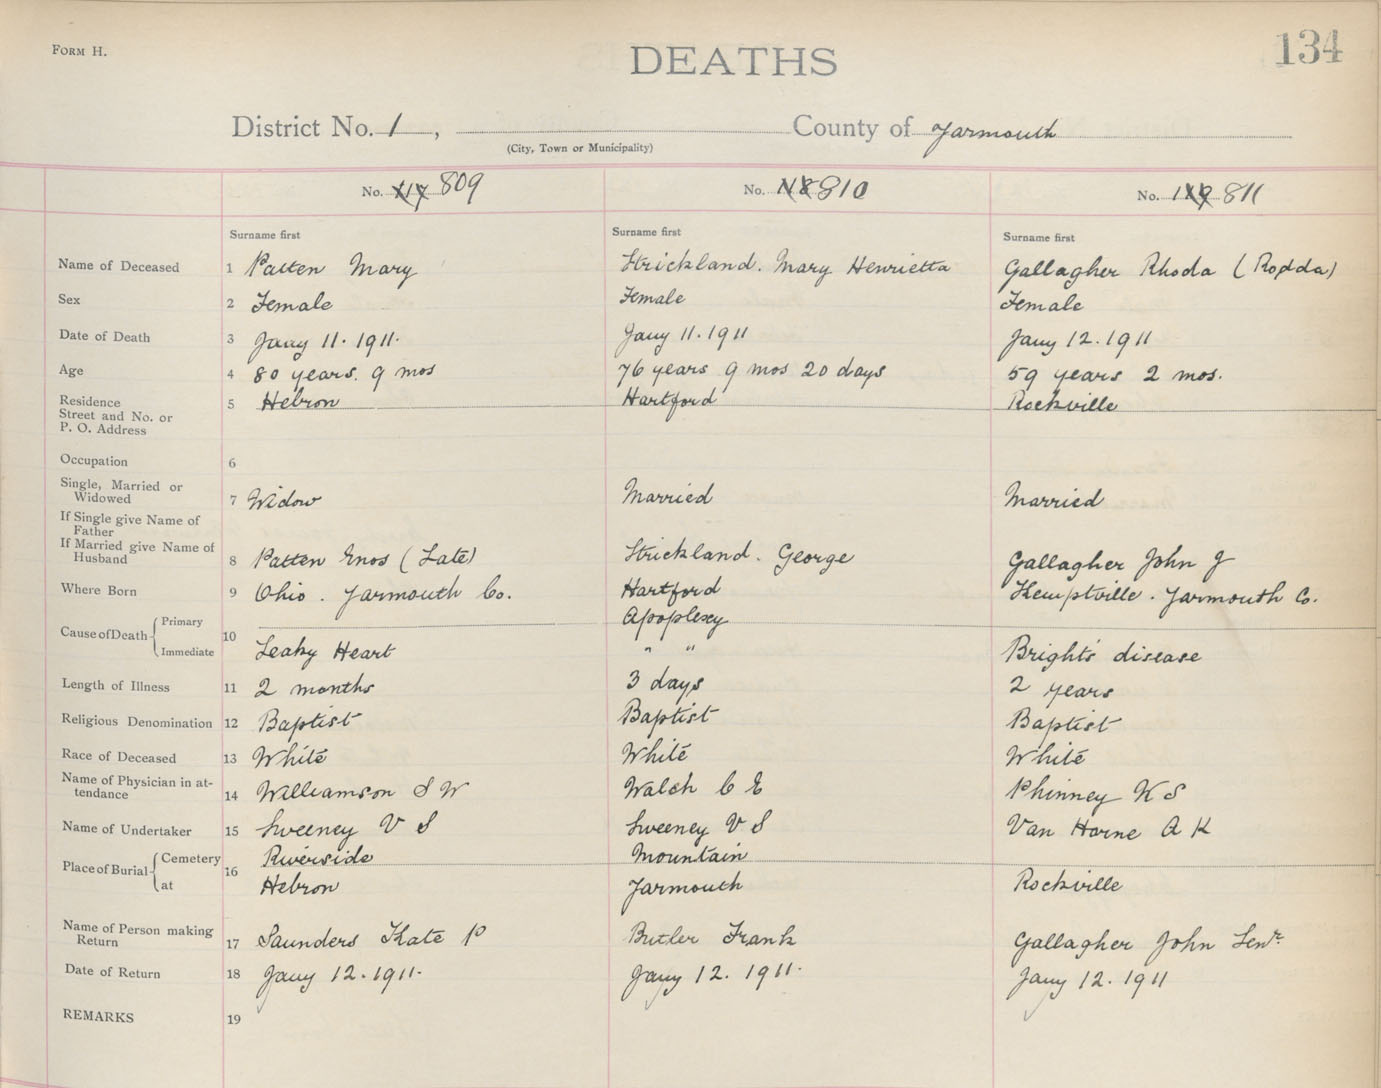 FORM H.
DEATHS
134
District No. 1, County of Yarmouth
(City, Town or Municipality)
No. 117 809 No. 118 810 No. 119 811
Surname first Surname first Surname first
Name of Deceased 1 Patten Mary Strickland. Mary Henrietta Gallagher Rhoda (Rodda)
Sex 2 Female Female Female
Date of Death 3 Jany 11. 1911. Jany 11. 1911 Jany 12. 1911
Age 4 80 years. 9 mos 76 years 9 mos 20 days 59 years 2 mos.
Residence 5 Hebron Hartford Rockville
Street and No. or
P. O. Address
Occupation 6
Single, Married or
Widowed 7 Widow Married Married
If Single give Name of
Father
If Married give Name of
Husband 8 Patten Enos (Late) Strickland. George Gallagher John J
Where Born 9 Ohio. Yarmouth Co. Hartford Kemptville. Yarmouth Co.
Cause of Death 10 Primary Apoplexy
Immediate Leaky Heart " " Bright's disease
Length of Illness 11 2 months 3 days 2 years
Religious Denomination 12 Baptist Baptist Baptist
Race of Deceased 13 White White White
Name of Physician in at-
tendance 14 Williamson S W Walch C E Phinney W S
Name of Undertaker 15 Sweeney V S Sweeney V S Van Horne A K
Place of Burial 16 Cemetery Riverside Mountain
at Hebron Yarmouth Rockville
Name of Person making
Return 17 Saunders Kate P Butler Frank Gallagher John Senr.
Date of Return 18 Jany 12. 1911. Jany 12. 1911. Jany 12. 1911
REMARKS 19